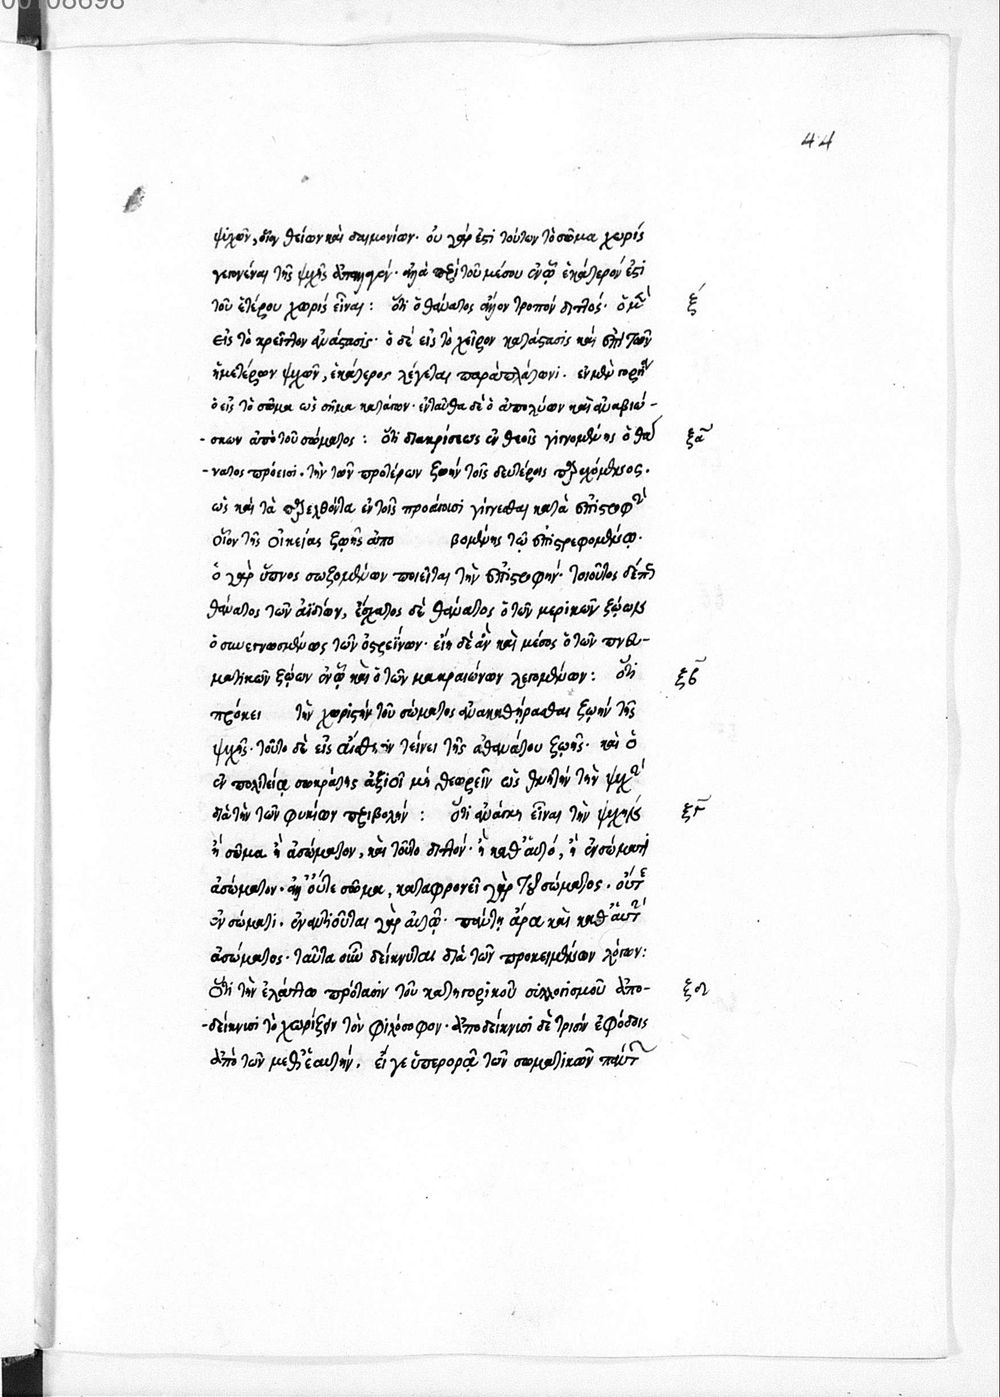 44
ψυχῶν, οἷον θείων καὶ δαιμονίων· οὐ γάρ ἐστι τούτων τὸ σῶμα χωρίς
γεγονέναι τῆς ψυχῆς ἀπαλλαγήν· ἀλλὰ περὶ τοῦ μέσου ἐν ᾧ ἑκάτερόν ἐστι
τοῦ ἑτέρου χωρίς εἶναι: ὅτι ὁ θάνατος ἄλλον τροπόν διττός· ὁ μὲν ξ
εἰς τὸ κρεῖττον ἀνάστασις· ὁ δὲ εἰς τὸ χεῖρον κατάστασις καὶ ἐπὶ τῶν
ἡμετέρων ψυχῶν, ἑκάτερος λέγεται παρὰ πλάτωνι. ἐν μὲν γοργίᾳ
ὁ εἰς τὸ σῶμα ὡς σῆμα κατάγων· ἐνταῦθα δὲ ὁ ἀπολύων καὶ ἀναβιώ-
-σκων ἀπὸ τοῦ σώματος: ὅτι διακρίσεως ἐν θεοῖς γιγνομένης ὁ θά ξα
-νατος πρόεισι. τὴν τῶν προτέρων ζωὴν τοῖς δευτέροις παρεχόμενος.
ὡς καὶ τὰ παρελθόντα ἐν τοῖς προάγουσι γίγνεσθαι κατὰ ἐπιστροφὴν
οἷον τῆς οἰκείας ζωῆς ἀπο βομένης τῷ ἐπιστρεφομένῳ.
ὁ γὰρ ὕπνος σωζομένων ποιεῖται τὴν ἐπιστροφήν. τοιοῦτος δέ τις
θάνατος τῶν ἀϊδίων, ἔσχατος δὲ θάνατος ὁ τῶν μερικῶν ζῴων
ὁ συνεγνωσμένος τῶν ὀστρεΐνων· εἴη δὲ ἂν καὶ μέσος ὁ τῶν πνευ-
ματικῶν ζῴων ἐν ᾧ καὶ ὁ τῶν μακραιώνων λεγομένων: ὅτι ξβ
πρόκει τὴν χωριστὴν τοῦ σώματος ἀνακτήσασθαι ζωήν τῆς
ψυχῆς· τοῦτο δὲ εἰς αἴσθησιν τείνει τῆς ἀθανάτου ζωῆς· καὶ ὁ
ἐν πολιτείᾳ σωκράτης ἀξιοῖ μὴ θεωρεῖν ὡς θνητὴν τὴν ψυχὴν
διὰ τὴν τῶν φυκίων περιβολήν: ὅτι ἀνάγκη εἶναι τὴν ψυχὴν ξγ
ἢ σῶμα ἢ ἀσώματον, καὶ τοῦτο διττόν· ἢ καθ᾽ αὑτό, ἢ ἐν σώματι
ἀσώματον· ἀλλ᾽ οὔτε σῶμα, καταφρονεῖ γὰρ τοῦ σώματος. οὔτε
ἐν σώματι. ἐναντιοῦται γὰρ αὐτῷ· πάντῃ ἄρα καὶ καθ᾽ αὑτὴν
ἀσώματος· ταῦτα οὖν δείκνυται διὰ τῶν προκειμένων λόγων:
ὅτι τὴν ἐλάττω πρότασιν τοῦ κατηγορικοῦ συλλογισμοῦ ἀπο- ξδ
-δείκνυσι τὸ χωρίζειν τὸν φιλόσοφον· ἀποδείκνυσι δὲ τρισὶν ἐφόδοις
ἀπὸ τῶν μεθ᾽ ἑαυτήν. εἴ γε ὑπερορᾷ τῶν σωματικῶν πάντων